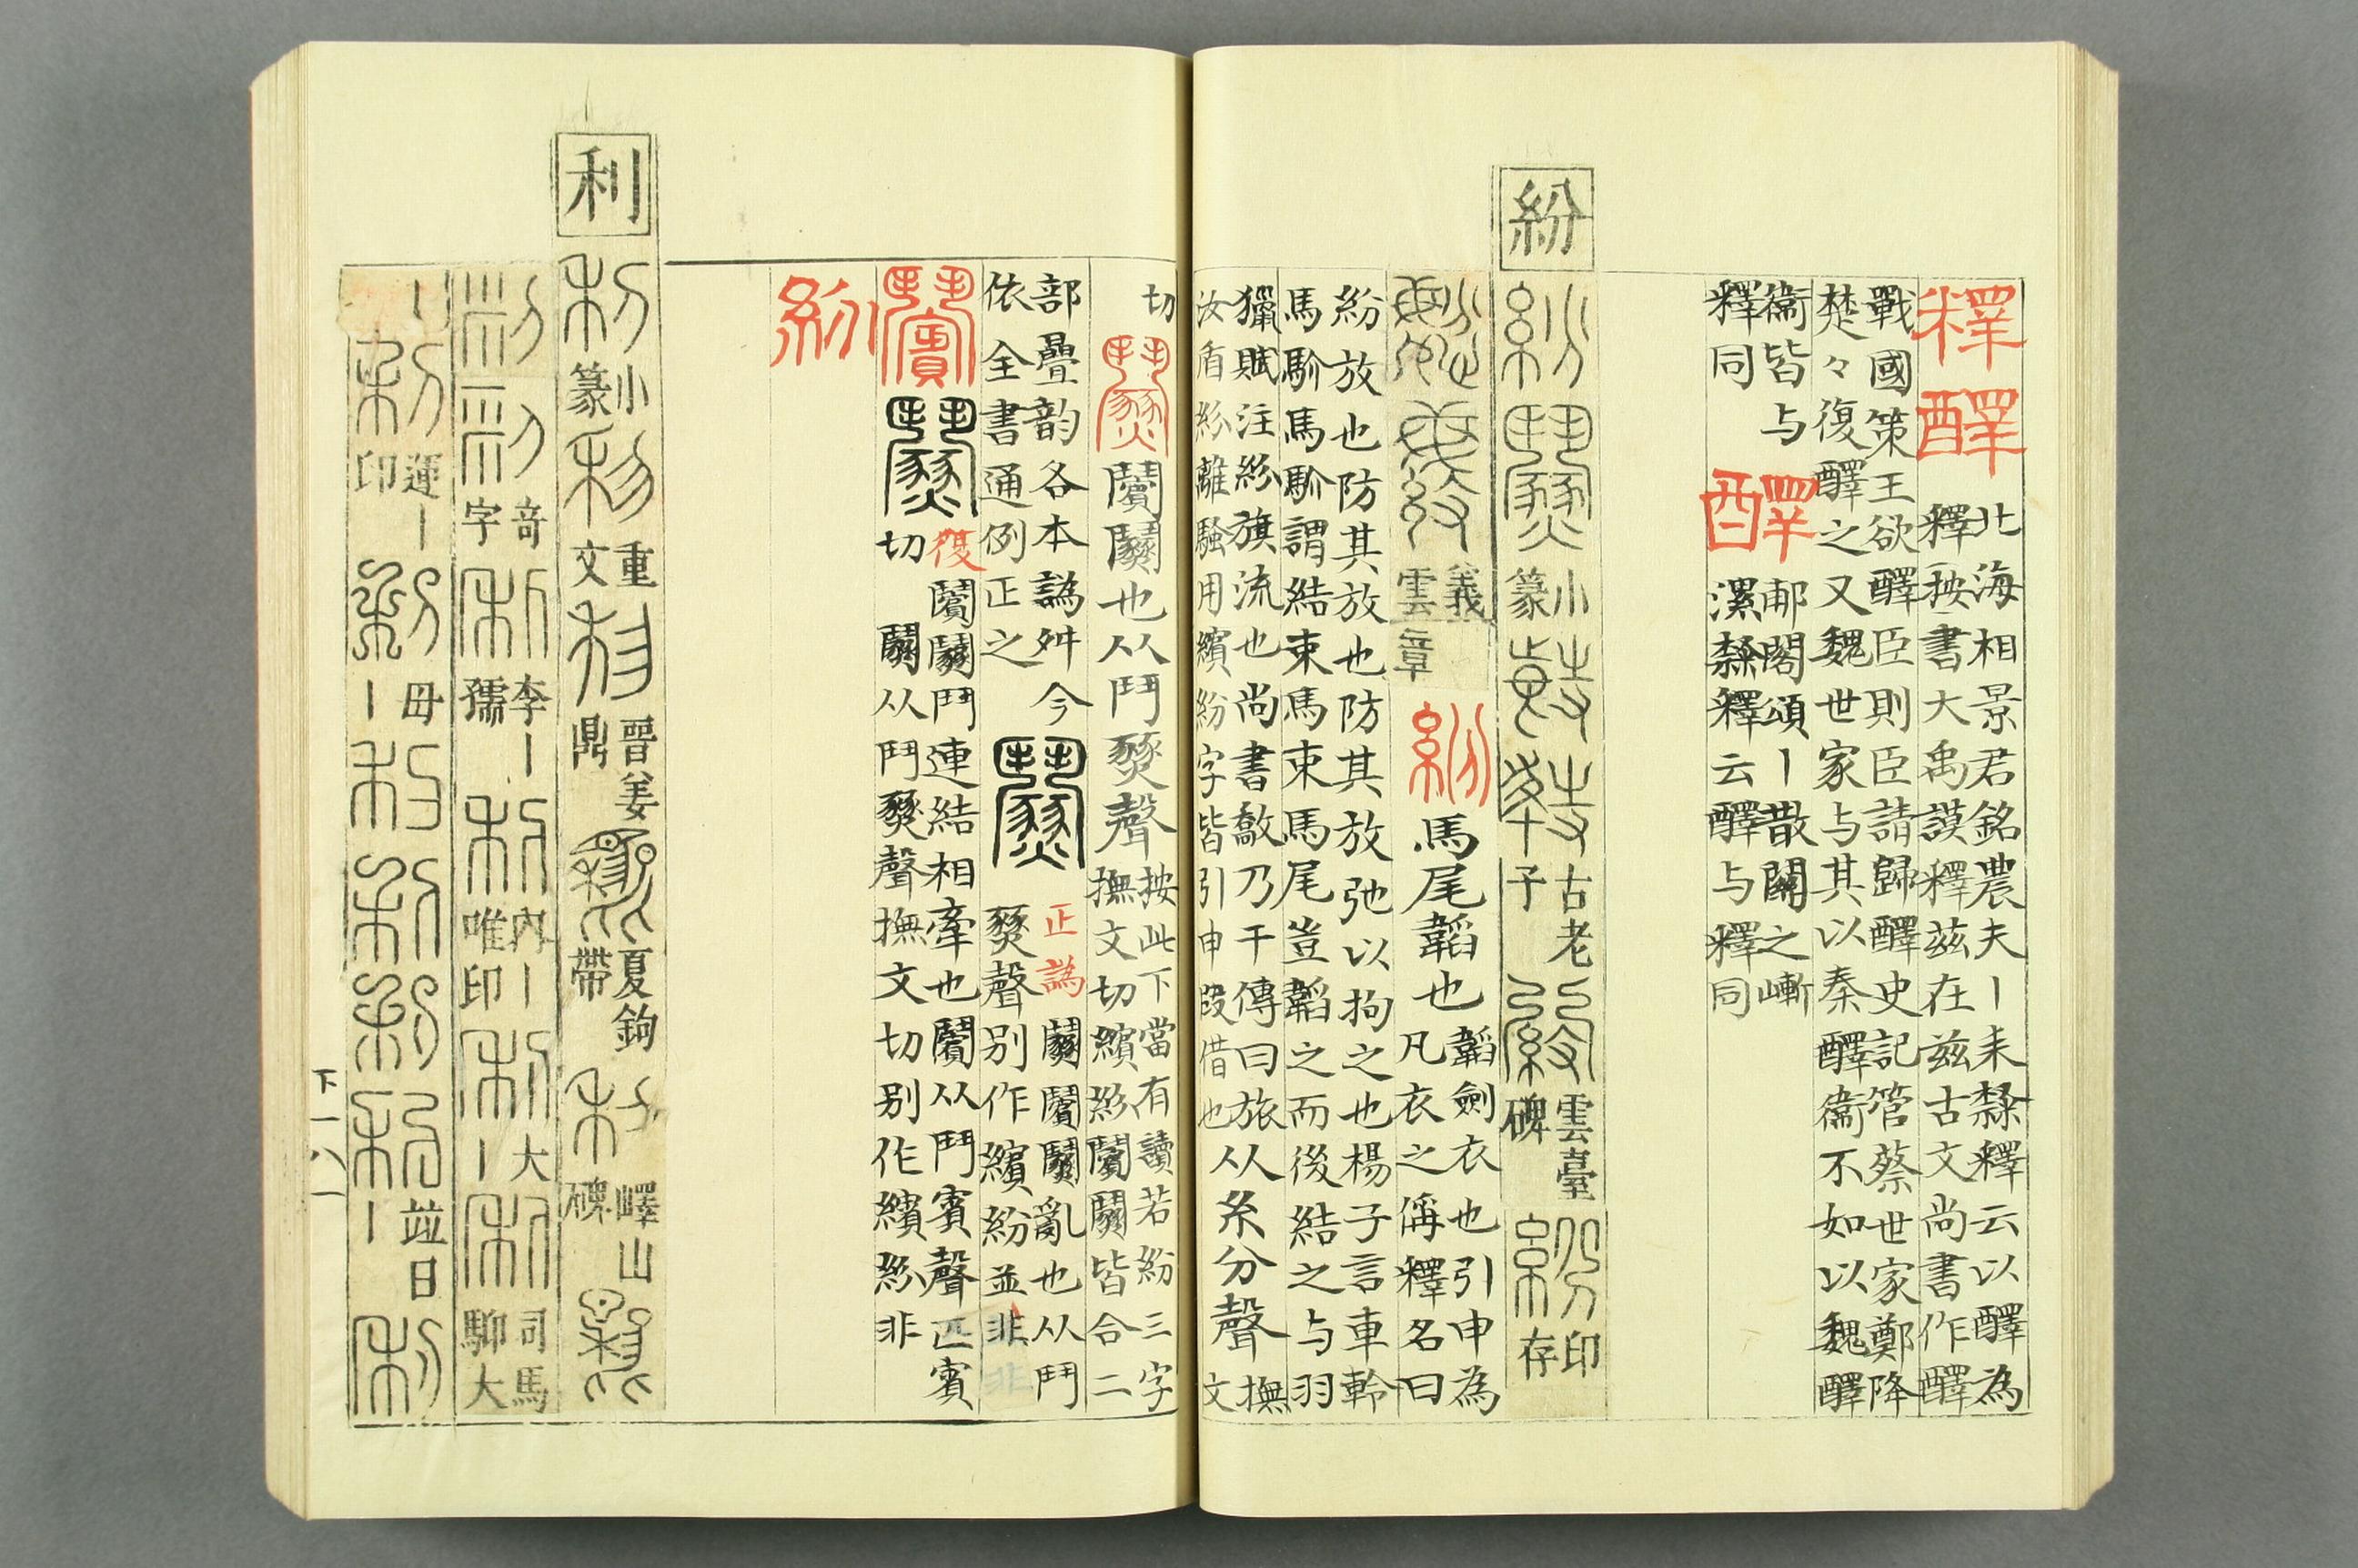 釋醳
北海相景君銘農夫丨耒隸釋云以醳為
釋按書大禹謨釋茲在茲古文尚書作醳
戰國策王欲醳臣則臣請歸醳史記管蔡世家鄭降
楚々復醳之又魏世家与其以秦醳衞不如以魏醳
衞皆与
釋同
醳
郙閣頌丨散關之嶃
漯隸釋云醳与釋同
紛
小篆
古老子
雲臺碑
印存
義雲章
紛
馬尾韜也
韜劍衣也引申為
凡衣之偁釋名曰
紛放也防其放也防其放弛以拘之也楊子言車軨
馬馸馬馸謂結束馬束馬尾豈韜之而後結之与羽
獵賦注紛旗流也尚書敿乃干傳曰旅
汝盾紛離騷用繽紛字皆引申叚借也
从糸分聲
撫文
切
闠闅也从鬥燹聲
按此下當有讀若紛三字
撫文切繽紛闠闅皆合二
部疊韵各本譌舛今
依全書通例正之
正譌
闅闠闅亂也从鬥
燹聲別作繽紛並非
復
切
闠闅鬥連結相牽也闠从鬥賓聲匹賓
闅从鬥燹聲撫文切别作繽紛非
紛
利
小篆
重文
晉姜鼎
夏鉤帶
嶧山碑
奇字
李丨孺
內丨唯印
大丨
司馬聊大
運丨印
毋丨
竝日丨
下一八一